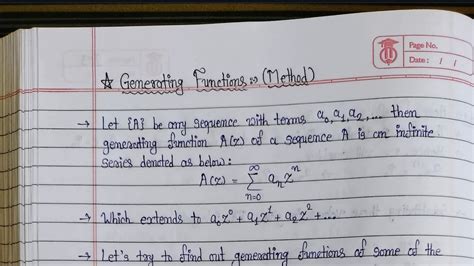 Page No.
Date: / /
☆ Generating Functions :- (Method)
→ Let {A} be any sequence with terms a₀, a₁, a₂, ... then
generating function A(z) of a sequence A is an infinite
series denoted as below:
A(z) = ∑_{n=0}^{∞} aₙzⁿ
→ Which extends to a₀z⁰ + a₁z¹ + a₂z² + ...
→ Let's try to find out generating functions of some of the